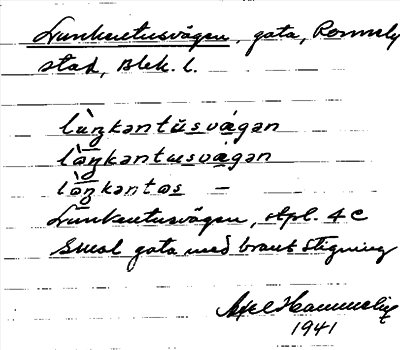 Lunkentusvägen, gata, Ronneby
stad, Blek. l.
lùŋkəntŭsvágən
lòŋkəntusvägən
lòŋkəntəs –
Lunkentusvägen, stpl. 4 C
Smal gata med brant stigning
Axel
1941